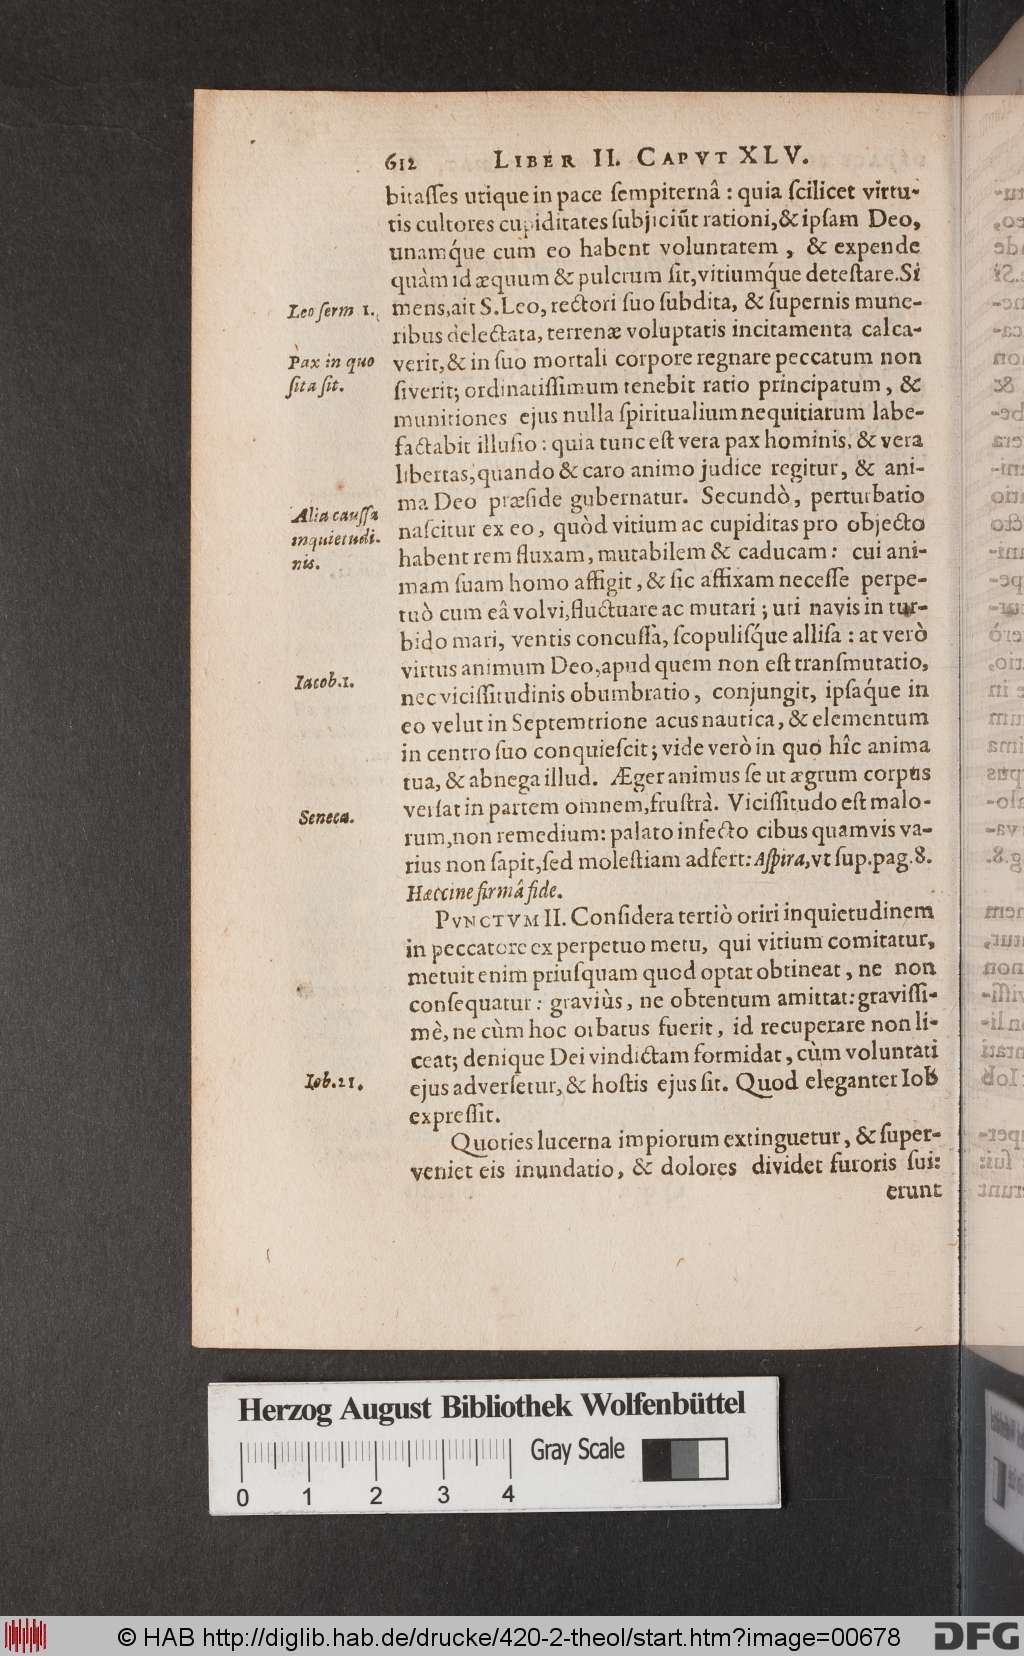 612 LIBER II. CAPVT XLV.
bitasses utique in pace sempiternâ : quia scilicet virtu-
tis cultores cupiditates subjiciũt rationi, & ipsam Deo,
unamq́ue cum eo habent voluntatem , & expende
quàm id æquum & pulcrum sit, vitiumq́ue detestare. Si
Leo serm 1.
mens, ait S. Leo, rectori suo subdita, & supernis mune-
ribus delectata, terrenæ voluptatis incitamenta calca-
Pax in quo
sita sit.
verit, & in suo mortali corpore regnare peccatum non
siverit; ordinatissimum tenebit ratio principatum , &
munitiones ejus nulla spiritualium nequitiarum labe-
factabit illusio : quia tunc est vera pax hominis, & vera
libertas, quando & caro animo judice regitur, & ani-
ma Deo præside gubernatur. Secundò, perturbatio
Alia caussa
inquietudi-
nis.
nascitur ex eo, quòd vitium ac cupiditas pro objecto
habent rem fluxam, mutabilem & caducam : cui ani-
mam suam homo affigit, & sic affixam necesse perpe-
tuò cum eâ volvi, fluctuare ac mutari ; uti navis in tur-
bido mari, ventis concussa, scopulisq́ue allisa : at verò
virtus animum Deo, apud quem non est transmutatio,
Iacob.1.
nec vicissitudinis obumbratio, conjungit, ipsaq́ue in
eo velut in Septemtrione acus nautica, & elementum
in centro suo conquiescit; vide verò in quo hîc anima
tua, & abnega illud. Æger animus se ut ægrum corpus
Seneca.
versat in partem omnem, frustrà. Vicissitudo est malo-
rum, non remedium: palato infecto cibus quamvis va-
rius non sapit, sed molestiam adfert: Aspira, vt sup. pag. 8.
Hæccine firmâ fide.
PVNCTVM II. Considera tertiò oriri inquietudinem
in peccatore ex perpetuo metu, qui vitium comitatur,
metuit enim priusquam quod optat obtineat, ne non
consequatur : graviùs, ne obtentum amittat: gravissi-
mè, ne cùm hoc orbatus fuerit, id recuperare non li-
ceat; denique Dei vindictam formidat, cùm voluntati
Iob.21.
ejus adversetur, & hostis ejus sit. Quod eleganter Iob
expressit.
Quoties lucerna impiorum extinguetur, & super-
veniet eis inundatio, & dolores dividet furoris sui:
erunt
Herzog August Bibliothek Wolfenbüttel
Gray Scale
0 1 2 3 4
© HAB http://diglib.hab.de/drucke/420-2-theol/start.htm?image=00678
DFG